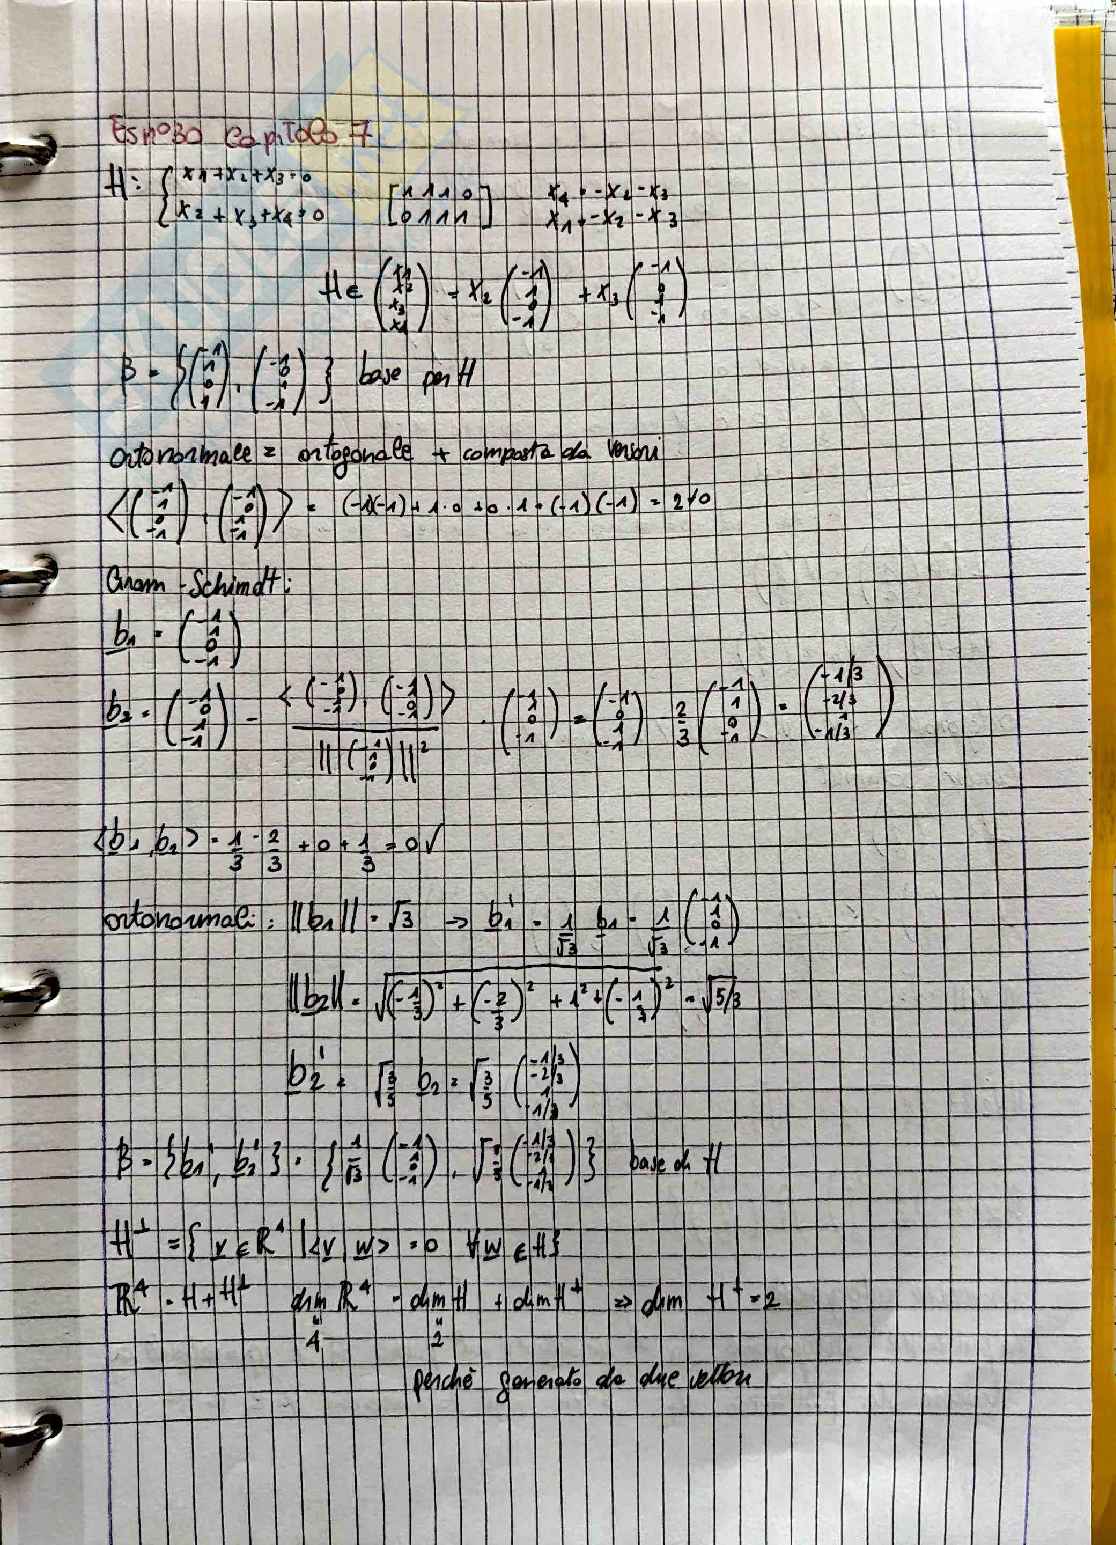 Es n°30 Capitolo 7
H: { x1+x2+x3=0 [1 1 1 0] x4=-x2-x3
x2+x3+x4=0 [0 1 1 1] x1=-x2-x3
H∈ (x1 x2 x3 x4) = x2 (-1 1 0 -1) + x3 (-1 0 1 -1)
B = {(-1 1 0 -1), (-1 0 1 -1)} base per H
ortonormale = ortogonale + composta da versori
<(-1 1 0 -1), (-1 0 1 -1)> = (-1)(-1)+1·0+0·1+(-1)(-1) = 2≠0
Gram-Schimdt:
b1 = (-1 1 0 -1)
b2 = (-1 0 1 -1) - <(-1 0 1 -1), (-1 1 0 -1)> / ||(-1 1 0 -1)||² · (-1 1 0 -1) = (-1 0 1 -1) 2/3 (-1 1 0 -1) = (-1/3 -2/3 1 -1/3)
<b1, b2> = 1/3 - 2/3 + 0 + 1/3 = 0 ✓
ortonormali: ||b1|| = √3 → b1' = 1/√3 b1 = 1/√3 (-1 1 0 -1)
||b2|| = √((-1/3)² + (-2/3)² + 1² + (-1/3)²) = √5/3
b2' = √3/5 b2 = √3/5 (-1/3 -2/3 1 -1/3)
B = {b1', b2'} = {1/√3 (-1 1 0 -1), √3/5 (-1/3 -2/3 1 -1/3)} base di H
H⊥ = {v∈R⁴ |<v, w> = 0 ∀w∈H}
R⁴ = H+H⊥ dim R⁴ = dim H + dim H⊥ ⇒ dim H⊥ = 2
4 2
perchè generato da due vettori